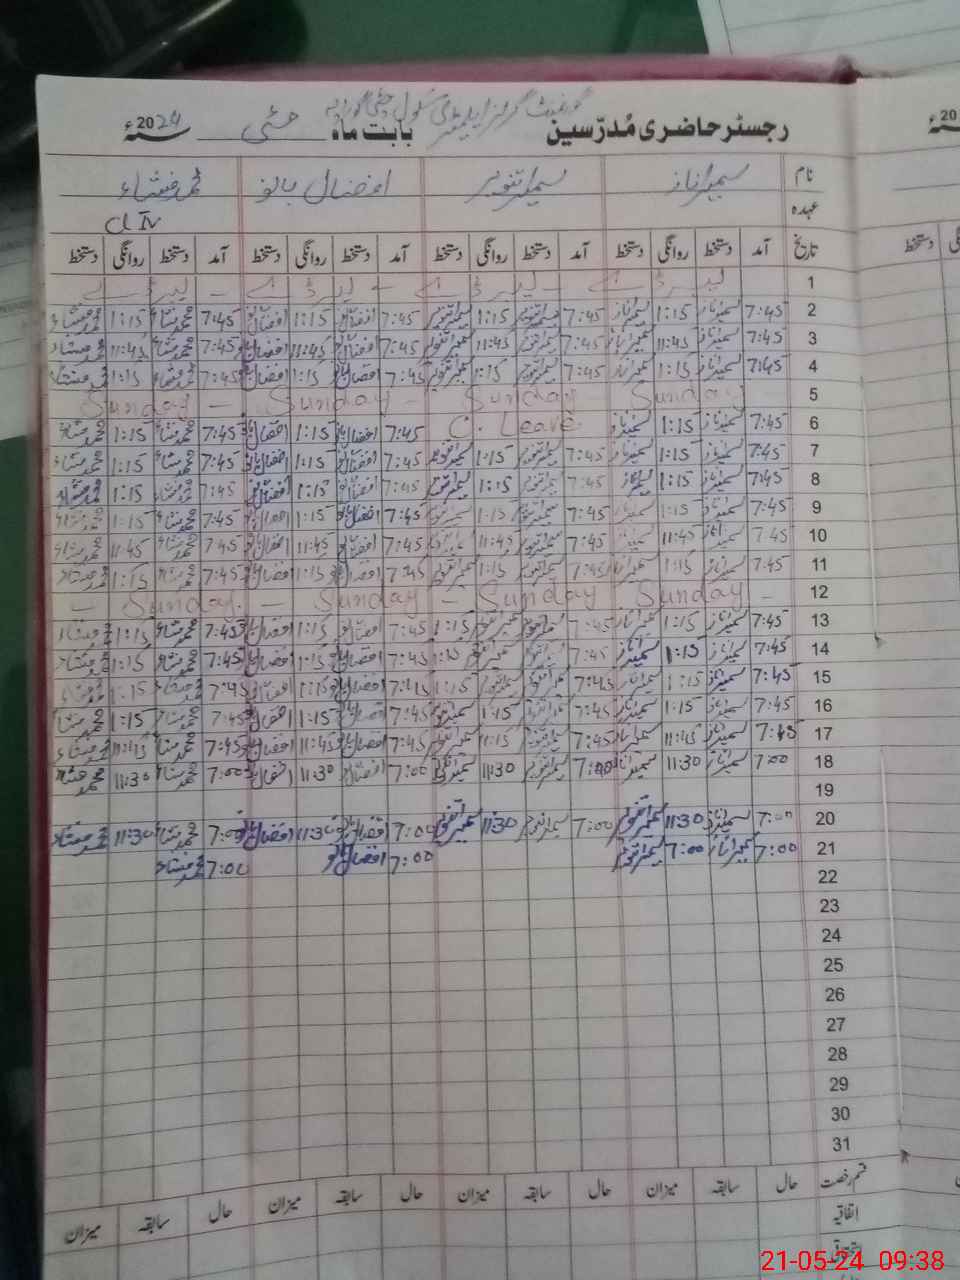 گورنمنٹ گرلز ایلیمنٹری سکول
رجسٹر حاضری مُدرّسین بابت ماہ مئی 2024ء
نام سمیرا ناز سمیرا تنویر افضال بانو محمد منشاء
عہدہ Cl IV
تاریخ آمد دستخط روانگی دستخط آمد دستخط روانگی دستخط آمد دستخط روانگی دستخط آمد دستخط روانگی دستخط
1
2 7:45 سمیرا ناز 1:15 سمیرا ناز 7:45 سمیرا تنویر 1:15 سمیرا تنویر 7:45 افضال بانو 1:15 افضال بانو 7:45 محمد منشاء 1:15 محمد منشاء
3 7:45 سمیرا ناز 11:45 سمیرا ناز 7:45 سمیرا تنویر 11:45 سمیرا تنویر 7:45 افضال بانو 11:45 افضال بانو 7:45 محمد منشاء 11:45 محمد منشاء
4 7:45 سمیرا ناز 1:15 سمیرا ناز 7:45 سمیرا تنویر 1:15 سمیرا تنویر 7:45 افضال بانو 1:15 افضال بانو 7:45 محمد منشاء 1:15 محمد منشاء
5 Sunday - Sunday - Sunday - Sunday -
6 7:45 سمیرا ناز 1:15 سمیرا ناز C. Leave 7:45 افضال بانو 1:15 افضال بانو 7:45 محمد منشاء 1:15 محمد منشاء
7 7:45 سمیرا ناز 1:15 سمیرا ناز 7:45 سمیرا تنویر 1:15 سمیرا تنویر 7:45 افضال بانو 1:15 افضال بانو 7:45 محمد منشاء 1:15 محمد منشاء
8 7:45 سمیرا ناز 1:15 سمیرا ناز 7:45 سمیرا تنویر 1:15 سمیرا تنویر 7:45 افضال بانو 1:15 افضال بانو 7:45 محمد منشاء 1:15 محمد منشاء
9 7:45 سمیرا ناز 1:15 سمیرا ناز 7:45 سمیرا تنویر 1:15 سمیرا تنویر 7:45 افضال بانو 1:15 افضال بانو 7:45 محمد منشاء 1:15 محمد منشاء
10 7:45 سمیرا ناز 11:45 سمیرا ناز 7:45 سمیرا تنویر 11:45 سمیرا تنویر 7:45 افضال بانو 11:45 افضال بانو 7:45 محمد منشاء 11:45 محمد منشاء
11 7:45 سمیرا ناز 1:15 سمیرا ناز 7:45 سمیرا تنویر 1:15 سمیرا تنویر 7:45 افضال بانو 1:15 افضال بانو 7:45 محمد منشاء 1:15 محمد منشاء
12 - Sunday - Sunday - Sunday Sunday -
13 7:45 سمیرا ناز 1:15 سمیرا ناز 7:45 سمیرا تنویر سمیرا تنویر 1:15 7:45 افضال بانو 1:15 افضال بانو 7:45 محمد منشاء 1:15 محمد منشاء
14 7:45 سمیرا ناز 1:15 سمیرا ناز 7:45 سمیرا تنویر سمیرا تنویر 1:15 7:45 افضال بانو 1:15 افضال بانو 7:45 محمد منشاء 1:15 محمد منشاء
15 7:45 سمیرا ناز 1:15 سمیرا ناز 7:45 سمیرا تنویر سمیرا تنویر 1:15 7:45 افضال بانو 1:15 افضال بانو 7:45 محمد منشاء 1:15 محمد منشاء
16 7:45 سمیرا ناز 1:15 سمیرا ناز 7:45 سمیرا تنویر 1:15 سمیرا تنویر 7:45 افضال بانو 1:15 افضال بانو 7:45 محمد منشاء 1:15 محمد منشاء
17 7:45 سمیرا ناز 11:45 سمیرا ناز 7:45 سمیرا تنویر 11:15 سمیرا تنویر 7:45 افضال بانو 11:45 افضال بانو 7:45 محمد منشاء 11:45 محمد منشاء
18 7:00 سمیرا ناز 11:30 سمیرا ناز 7:00 سمیرا تنویر 11:30 سمیرا تنویر 7:00 افضال بانو 11:30 افضال بانو 7:00 محمد منشاء 11:30 محمد منشاء
19
20 7:00 سمیرا ناز 11:30 سمیرا تنویر 7:00 سمیرا تنویر 11:30 سمیرا تنویر 7:00 افضال بانو 11:30 افضال بانو 7:00 محمد منشاء 11:30 محمد منشاء
21 7:00 سمیرا ناز 7:00 سمیرا تنویر 7:00 افضال بانو 7:00 محمد منشاء
22
23
24
25
26
27
28
29
30
31
قسم رخصت حال سابقہ میزان حال سابقہ میزان حال سابقہ میزان حال سابقہ میزان
اتفاقیہ
استحقاقی
21-05-24 09:38